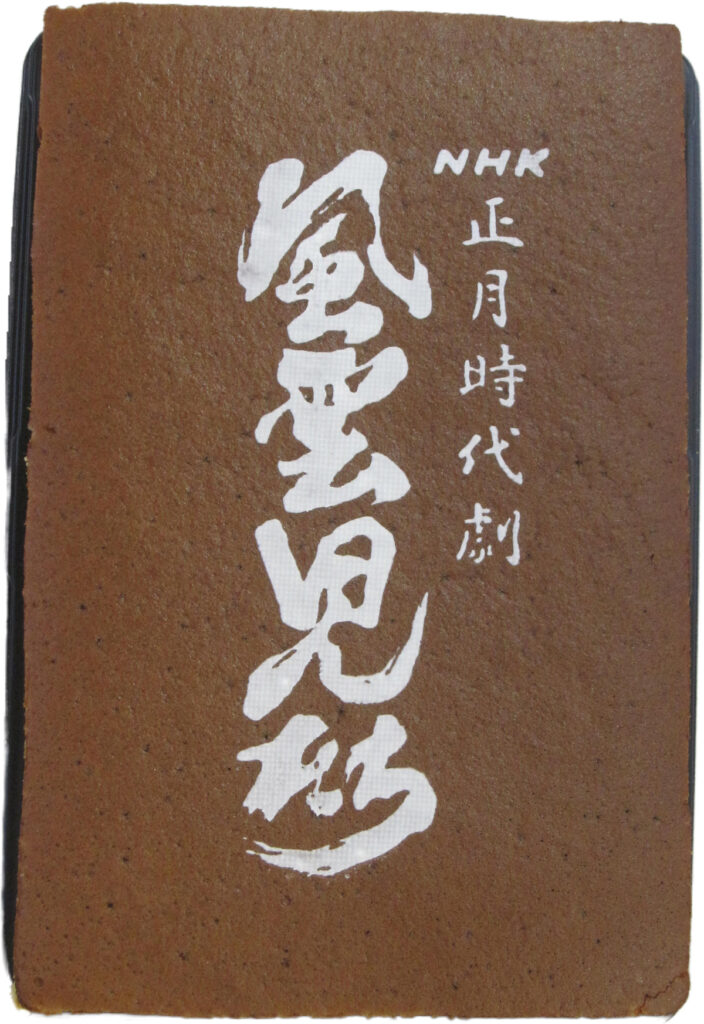 NHK正月時代劇
風雲児たち